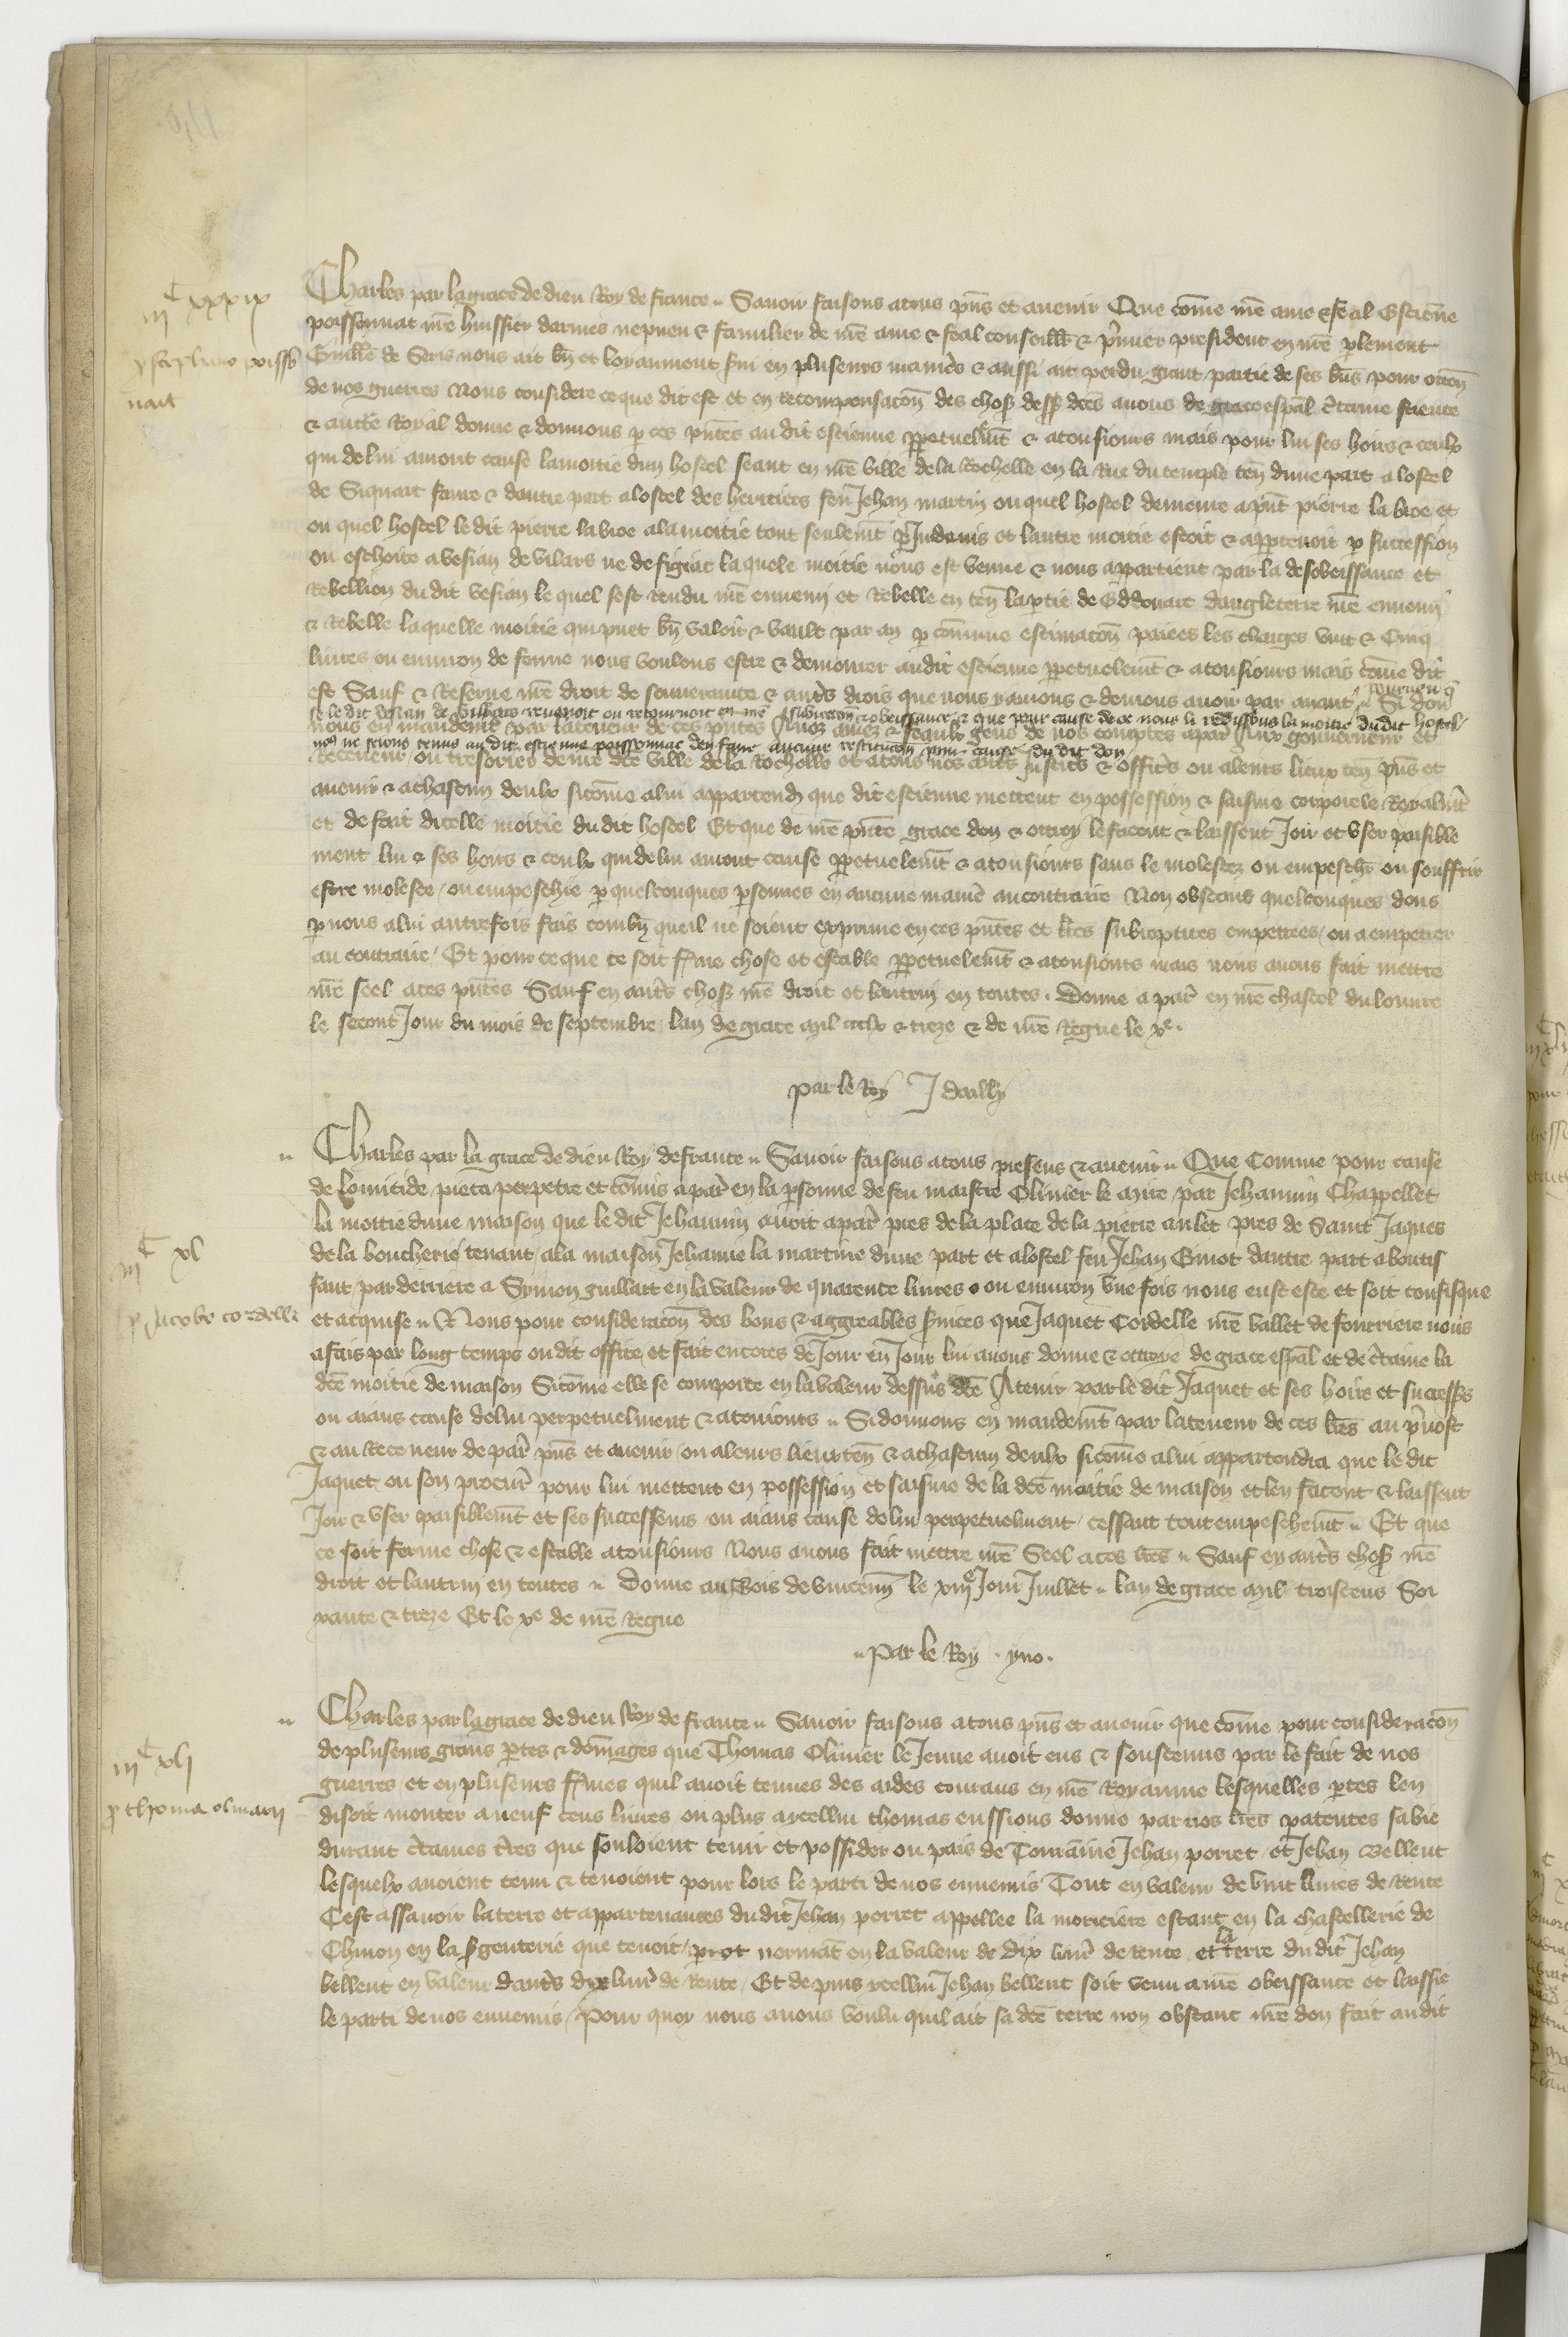 Charles par la grace de dieu Roy de france Sauoir faisons a tous pns et auenir Que comme nre ame & feal Estienne
IIIc XXXIX
poissonnat nre huissier darmes nepueu & familier de nre ame & feal conseillr & premier president en nre plement
p stephano poisso
nait
Guille de Seris nous ait bn et loyaument serui en pluseurs manieres & aussi ait perdu grant partie de ses bns pour occon
de nos guerres Nous considere ce que dit est et en recompensacon des choses dess dces auons de grace espal certaine science
& aucte Royal donne & donnons p ces pntes au dit estienne perpetuelmt & a tousiours mais pour lui ses hoirs & ceulx
qui de lui auront cause la moitie dun hostel seant en nre ville de la Rochelle en la Rue du temple ten dune part a lostel
de Siquart faure & dautre part a lostel des heritiers feu Jehan martin ou quel hostel demeure a pnt pierre labroe et
ou quel hostel le dit pierre labroe a la moitie tout seulemt p Indeuis et lautre moitie estoit & appartenoit p succession
ou eschoite a vesian de vilars ne de figiac la quele moitie nous est venue & nous appartient par la desobeissance et
Rebellion du dit vesian le quel sest rendu nre ennemi et Rebelle en ten la partie de Eddouart dangleterre nre ennemi
& Rebelle la quelle moitie qui puet bn valoir & vault par an p commune estimacon paiees les charges vint & Cinq
liures ou enuiron de ferme nous voulons estre & demourer audit estienne perpetuelemt & a tousiours mais come dit
est Sauf & Reserue nre droit de souuerainte & autres drois que nous y auions & deuions auoir par auant pourueu q
se le dit vesian de villars reuenoit ou retournoit en nre subieccon & obeissance & que pour cause de ce nous li redissions la moitie du dit hostel
nous ne serions tenus au dit estienne poissonnac den faire aucune restitucon pour cause du dit don
Si don
nous en mandemt par la teneur de ces pntes A noz amez & feaulx gens de nos comptes a par Aux gouuerneur et
Receueur ou tresorier de nre dce ville de la Rochelle et a tous nos autres Justiciers & officiers ou a leurs lieux ten pns et
auenir & a chascun deulx si come a lui appartendra que dit estienne mettent en possession & saisine corporele Royalmt
et de fait dicelle moitie du dit hostel Et que de nre pnte grace don & ottroy le facent & laissent Joir et vser paisible
ment lui & ses hoirs & ceulx qui de lui auront cause perpetuelemt & a tousiours sans le molestez ou empeschr ou souffrir
estre moleste ou empeschie p quelconques psonnes en aucune maniere au contraire Non obstans quelconques dons
p nous a lui autrefois fais combn queil ne soient exprime en ces pntes et lres subreptices empetrees ou a empetrer
au contraire Et pour ce que ce soit ferme chose et estable perpetuelemt & a tousiours mais nous auons fait mettre
nre seel a ces pntes Sauf en autres choses nre droit et lautrui en toutes. Donne a par en nre chastel du louure
le secont Jour du mois de septembre lan de grace mil ccclx & treze & de nre Regne le xe.
par le Roy J dailly
Charles par la grace de dieu Roy de france Sauoir faisons a tous presens & auenir Que Comme pour cause
de lomicide pieca perpetre et commis a par en la personne de feu maistre Oliuier le mire par Jehannin Chappellet
la moitie dune maison que le dit Jehannin auoit a par pres de la place de la pierre au let pres de Saint Jaques
IIIc XL
de la boucherie tenant a la maison Jehanne la martine dune part et a lostel feu Jehan Guiot dautre part aboutis
sant par derriere a Symon guillart en la valeur de quarente liures ou enuiron vne fois nous eust este et soit confisque
p Jacobo cordelle
et acquise Nous pour consideracon des bons & aggreables seruices que Jaquet Cordelle nre vallet de fourriere nous
a fais par long temps ou dit office et fait encores de Jour en Jour lui auons donne & ottroye de grace espal et de certaine la
dce moitie de maison Si come elle se comporte en la valeur dessus dce A tenir par le dit Jaquet et ses hoirs et successrs
ou aians cause de lui perpetuelment & a tousiours Si donnons en mandemt par la teneur de ces lres au preuost
& au Receueur de par pns et auenir ou a leurs lieuxten & a chascun deulx si come a lui appartendra que le dit
Jaquet ou son procur pour lui mettent en possession et saisine de la dce moitie de maison et len facent & laissent
Joir & vser paisiblemt et ses successeurs ou aians cause de lui perpetuelment cessant tout empeschemt Et que
ce soit ferme chose & estable a tousiours Nous auons fait mettre nre Seel a ces lres Sauf en autres choses nre
droit et lautrui en toutes Donne au Bois de vincenn le xiiie Jour Juillet lan de grace mil troiscens Soi
xante & treze Et le xe de nre Regne
Par le Roy . yuo .
Charles par la grace de dieu Roy de france Sauoir faisons a tous pns et auenir que come pour consideracon
de pluseurs grans pertes & dommages que Thomas Oliuier le Jenne auoit eus & soustenus par le fait de nos
IIIc XLI
guerres et en pluseurs fermes quil auoit tenues des aides courans en nre Royaume lesquelles pertes len
p thoma oliuarii
disoit monter a neuf cens liures ou plus aycellui thomas eussions donne par nos lres patentes sa vie
durant certaines terres que souloient tenir et possider ou pais de Touraine Jehan perret et Jehan Bellent
lesquelx auoient tenu & tenoient pour lors le parti de nos ennemis Tout en valeur de vint liures de Rente
Cest assauoir la terre et appartenances du dit Jehan perret appellee la moriciere estant en la chastellerie de
Chinon en la sergenterie que tenoit perrot normant en la valeur de dix liures de Rente et la terre du dit Jehan
bellent en valeur dautres dix liures de Rente Et depuis ycellui Jehan bellent soit venu a nre obeissance et laissie
le parti de nos ennemis Pour quoy nous auons voulu quil ait sa dce terre non obstant nre don fait au dit